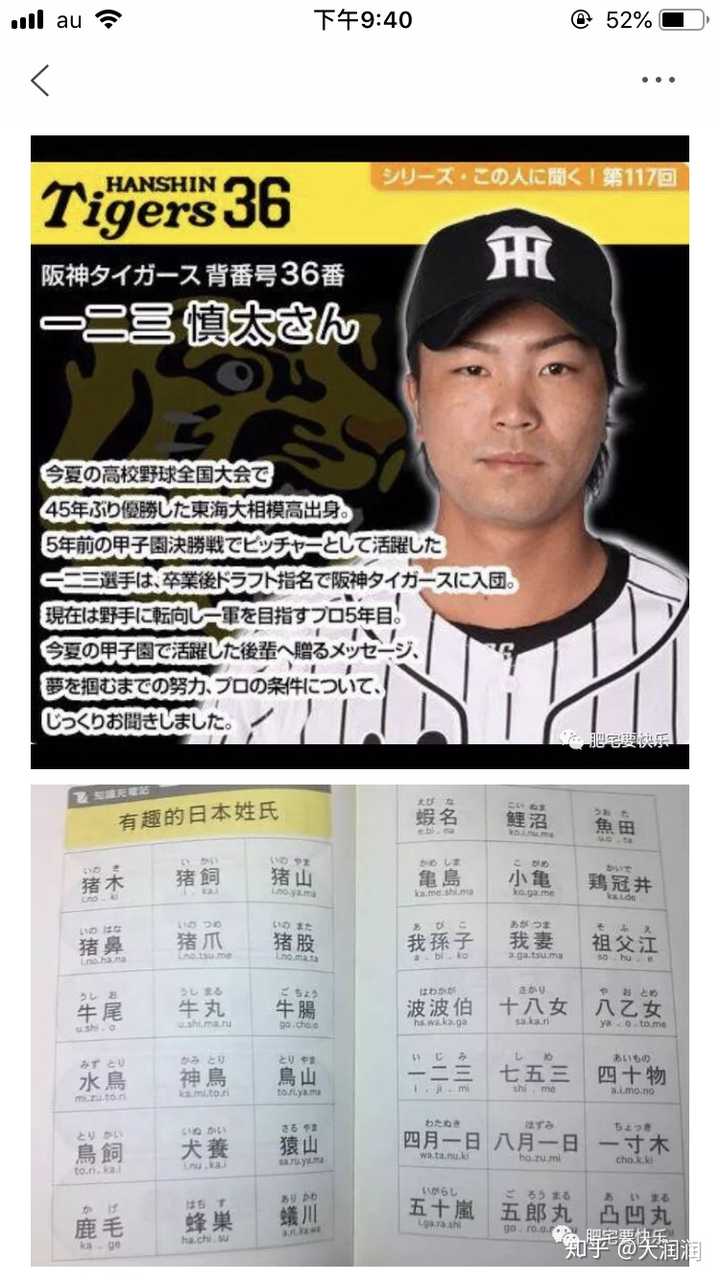 au
下午9:40
52%
HANSHIN
Tigers 36
シリーズ・この人に聞く！第117回
阪神タイガース 背番号36番
一二三 慎太さん
今夏の高校野球全国大会で
45年ぶり優勝した東海大相模高出身。
5年前の甲子園決勝戦でピッチャーとして活躍した
一二三選手は、卒業後ドラフト指名で阪神タイガースに入団。
現在は野手に転向し一軍を目指すプロ5年目。
今夏の甲子園で活躍した後輩へ贈るメッセージ、
夢を掴むまでの努力、プロの条件について、
じっくりお聞きしました。
肥宅要快乐
知識充電站
有趣的日本姓氏
いの き い かい いの やま
猪木 猪飼 猪山
i.no.ki i.ka.i i.no.ya.ma
いの はな いの つめ いの また
猪鼻 猪爪 猪股
i.no.ha.na i.no.tsu.me i.no.ma.ta
うし お うし まる ご ちょう
牛尾 牛丸 牛腸
u.shi.o u.shi.ma.ru go.cho.o
みず とり かみ とり とり やま
水鳥 神鳥 鳥山
mi.zu.to.ri ka.mi.to.ri to.ri.ya.ma
とり かい いぬ かい さる やま
鳥飼 犬養 猿山
to.ri.ka.i i.nu.ka.i sa.ru.ya.ma
か げ はち す あり かわ
鹿毛 蜂巣 蟻川
ka.ge ha.chi.su a.ri.ka.wa
えび な こい ぬま うお た
蝦名 鯉沼 魚田
e.bi.na ko.i.nu.ma u.o.ta
かめ しま こ がめ かいで
亀島 小亀 鶏冠井
ka.me.shi.ma ko.ga.me ka.i.de
あ び こ あが つま そ ふ え
我孫子 我妻 祖父江
a.bi.ko a.ga.tsu.ma so.hu.e
はわかが さかり や お とめ
波波伯 十八女 八乙女
ha.wa.ka.ga sa.ka.ri ya.o.to.me
い じ み し め あいもの
一二三 七五三 四十物
i.ji.mi shi.me a.i.mo.no
わたぬき ほずみ ちょっき
四月一日 八月一日 一寸木
wa.ta.nu.ki ho.zu.mi cho.k.ki
いがらし ご ろう まる あ い まる
五十嵐 五郎丸 凸凹丸
i.ga.ra.shi
肥宅要快乐
知乎 @大润润